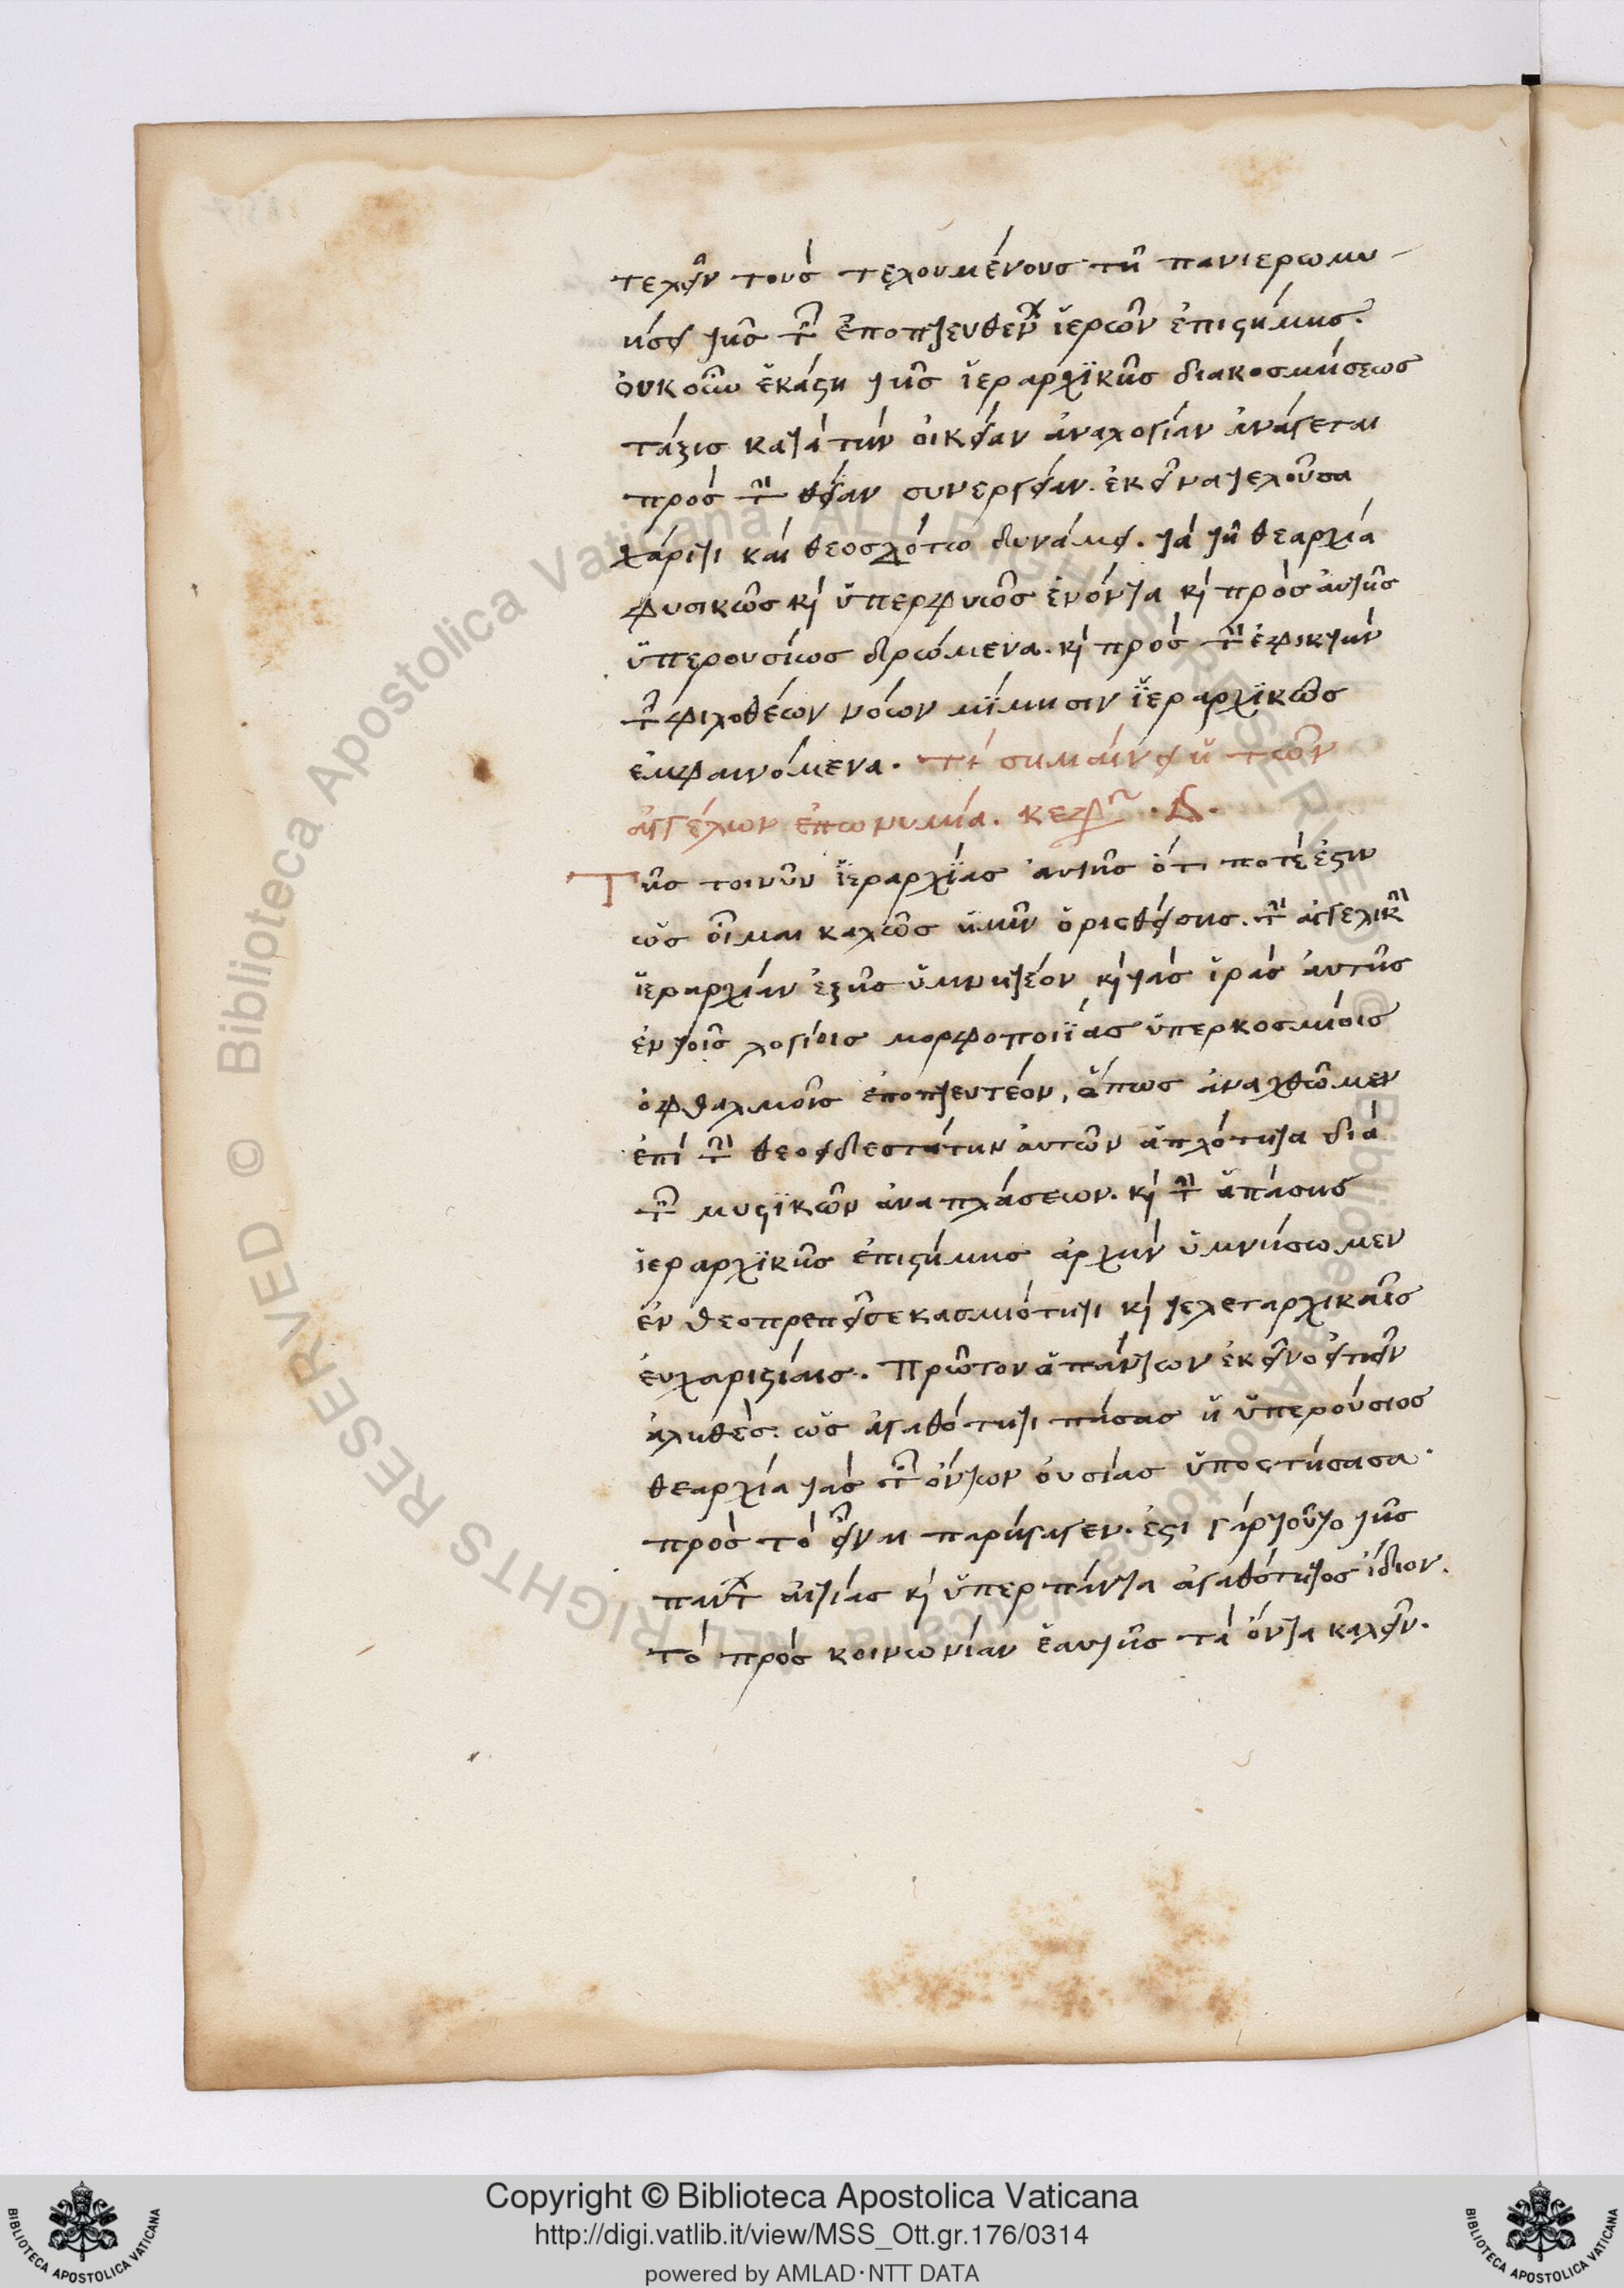 τελεῖν τοὺς τελουμένους τῆ πανιέρω μυ-
ήσει τῆς τῶν ἐποπτευθέντων ἱερῶν ἐπιστήμης.
ὀυκοῦν ἑκάστη τῆς ἱεραρχικῆς διακοσμήσεως
τάξις κατὰ τὴν ὀικείαν ἀναλογίαν ἀνάγεται
πρὸς τὴν θείαν συνεργείαν. ἐκεῖνα τελοῦσα
χάριτι καὶ θεοσδότω δυνάμει. τὰ τῆ θεαρχία
φυσικῶς καὶ ὑπερφυῶς ἐνόντα καὶ πρὸς ἀυτῆς
ὑπερουσίως δρώμενα. καὶ πρὸς τὴν ἐφικτὴν
τῶν φιλοθέων νόων μίμησιν ἱεραρχικῶς
ἐμφαινόμενα. τί σημαίνει ἡ τῶν
ἀγγέλων ἐπωνυμία. κεφ. Δ.
Τῆς τοινῦν ἱεραρχίας ἀυτῆς ὅτι ποτέ ἐστιν
ὡς οἶμαι καλῶς ἡμῖν ὁρισθείσης. τὴν ἀγγελικὴν
ἱεραρχίαν ἑξῆς ὑμνητέον καὶ τὰς ἱερὰς ἀυτῆς
ἐν τοῖς λογίοις μορφοποιίας ὑπερκοσμίοις
ὀφθαλμοῖς ἐποπτευτέον, ὅπως ἀναχθῶμεν
ἐπὶ τὴν θεοειδεστάτην ἀυτῶν ἁπλότητα διὰ
τῶν μυστικῶν ἀναπλάσεων. καὶ τὴν ἁπάσης
ἱεραρχικῆς ἐπιστήμης ἀρχὴν ὑμνήσωμεν
ἐν θεοπρεπεῖ σεκασμιότητι καὶ τελεταρχικαῖς
ἐυχαριστίαις. Πρῶτον ἁπάντων ἐκεῖνο εἰπεῖν
ἀληθὲς. ὡς ἀγαθότητι πάσας ἡ ὑπερούσιος
θεαρχία τὰς τῶν ὄντων ὀυσίας ὑποστήσασα
πρὸς τὸ εἶναι παρήγαγεν. ἔστι γὰρ τοῦτο τῆς
πάντων ἀιτίας καὶ ὑπερπάντα ἀγαθότητος ἴδιον.
τὸ πρὸς κοινωνίαν ἑαυτῆς τὰ ὄντα καλεῖν.
Copyright © Biblioteca Apostolica Vaticana
http://digi.vatlib.it/view/MSS_Ott.gr.176/0314
powered by AMLAD·NTT DATA